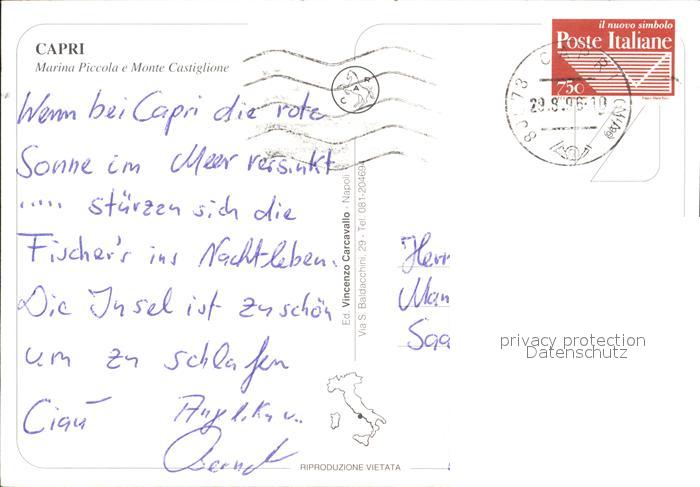 CAPRI
Marina Piccola e Monte Castiglione
Wenn bei Capri die rote
Sonne im Meer versinkt
..... stürzen sich die
Fischer's ins Nachtleben.
Die Insel ist zu schön
um zu schlafen
Ciau Angelika u.
Bernd
Ed. Vincenzo Carcavallo - Napoli
Via S. Baldacchini, 29 - Tel. 081-204694
CAR
RIPRODUZIONE VIETATA
il nuovo simbolo
Poste Italiane
750
80173 CAPRI (NA)
29.8.96-10
Herr
Man
Saa
privacy protection
Datenschutz